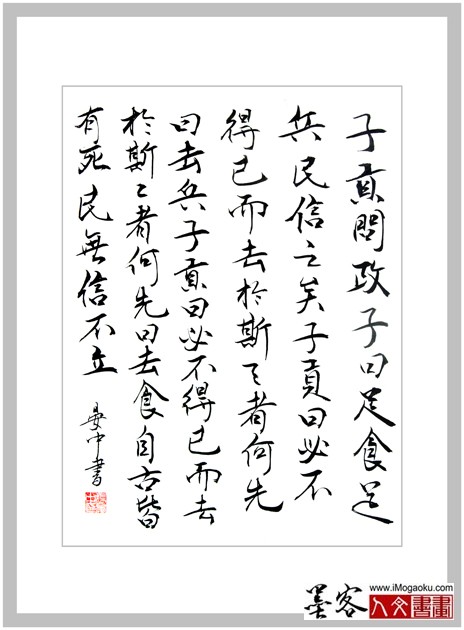 子貢問政子曰足食足
兵民信之矣子貢曰必不
得已而去於斯三者何先
曰去兵子貢曰必不得已而去
於斯二者何先曰去食自古皆
有死民無信不立
晏中書
墨客
www.iMogaoku.com
人文書畫